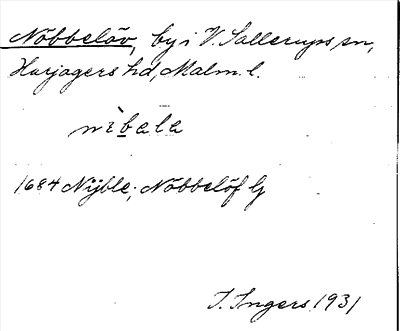 Nöbbelöv, by i V. Sallerups sn,
Harjagers hd, Malm. l.
nìbala
1684 Nÿble; Nöbbelöf By
I. Ingers 1931